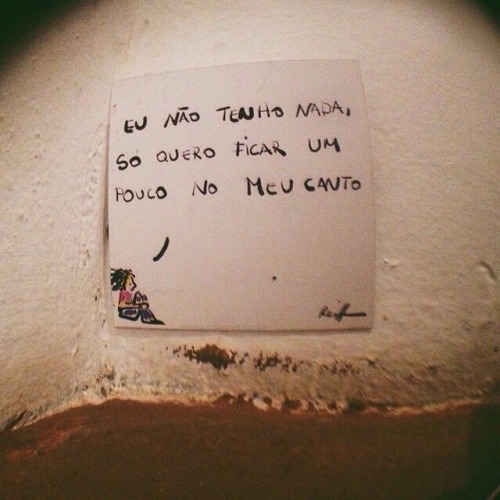 EU NÃO TENHO NADA,
SÓ QUERO FICAR UM
POUCO NO MEU CANTO